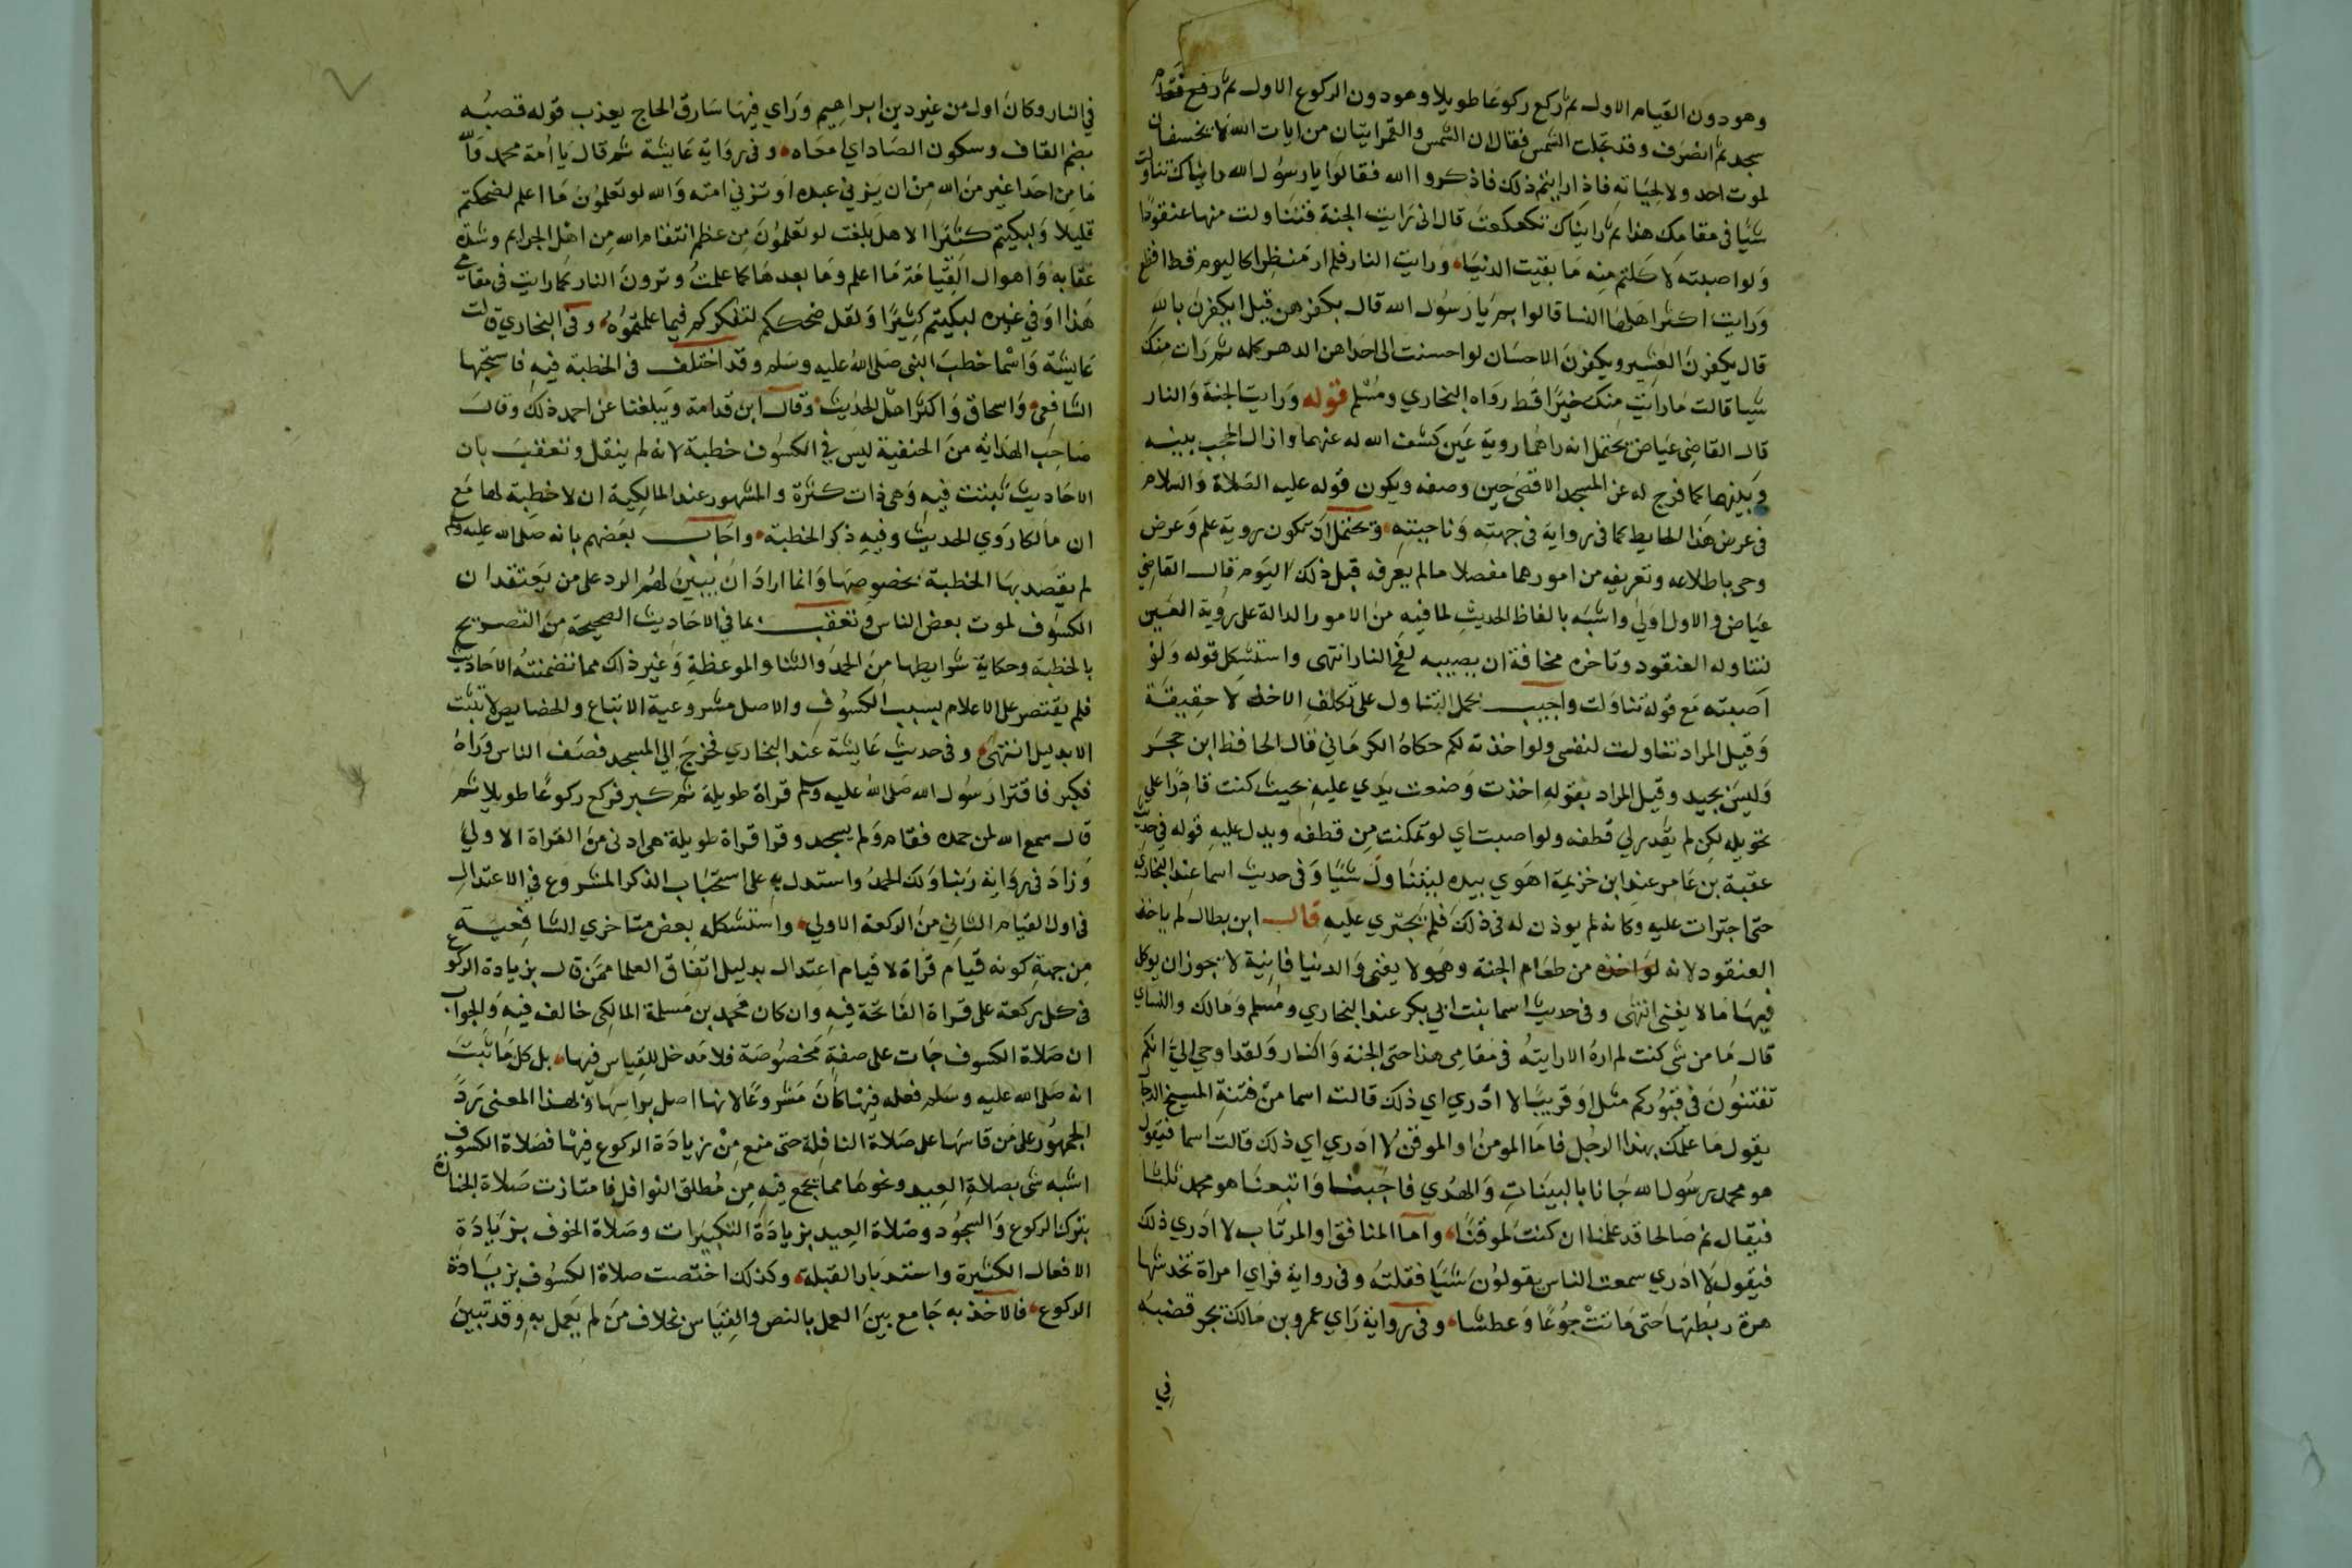 وهو دون القيام الاول ثم ركع ركوعا طويلا وهو دون الركوع الاول ثم رفع فقام
سجد ثم انصرف وقد تجلت الشمس فقال ان الشمس والقمر ايتان من ايات الله لا يخسفان
لموت احد ولا لحياته فاذا رايتم ذلك فاذكروا الله فقالوا يا رسول الله رايناك تناولت
شيا في مقامك هذا ثم رايناك تكعكعت قال اني رايت الجنة فتناولت منها عنقودا
ولو اصبته لاكلتم منه ما بقيت الدنيا ورايت النار فلم ار منظرا كاليوم قط افظع
ورايت اكثر اهلها النسا قالوا بم يا رسول الله قال بكفرهن قيل ايكفرن بالله
قال يكفرن العشير ويكفرن الاحسان لو احسنت الى احداهن الدهر كله ثم رات منك
شيا قالت ما رايت منك خيرا قط رواه البخاري ومسلم قوله ورايت الجنة والنار
قال القاضي عياض يحتمل انه راهما روية عين كشف الله له عنهما وازال الحجب بينه
وبينهما كما فرج له عن المسجد الاقصى حين وصفه ويكون قوله عليه الصلاة والسلام
في عرض هذا الحايط كما في رواية في جهته وناحيته ويحتمل ان تكون روية علم وعرض
وحي باطلاعه وتعريفه من امورهما مفصلا ما لم يعرفه قبل ذلك اليوم قال القاضي
عياض والاول اولى واشبه بالفاظ الحديث لما فيه من الامور الدالة على روية العين
لتناوله العنقود وتاخره مخافة ان يصيبه لفح النار انتهى واستشكل قوله ولو
اصبته مع قوله تناولت واجيب بحمل التناول على تكلف الاخذ لا حقيقة
وقيل المراد تناولت لنفسي ولو اخذته لكم حكاه الكرماني قال الحافظ ابن حجر
وليس بجيد وقيل المراد بقوله اخذت وضعت يدي عليه بحيث كنت قادرا على
تحويله لكن لم يقدر لي قطفه ولو اصبت اي لو تمكنت من قطفه ويدل عليه قوله في حديث
عقبة بن عامر عند ابن خزيمة اهوى بيده ليتناول شيا وفي حديث اسما عند البخاري
حتى اجترات عليه وكانه لم يوذن له في ذلك فلم يجتري عليه قال ابن بطال لم ياخذ
العنقود لانه لو اخذه من طعام الجنة وهو لا يفنى والدنيا فانية لا يجوز ان يوكل
فيها ما لا يفنى انتهى وفي حديث اسما بنت ابي بكر عند البخاري ومسلم ومالك والنساي
قال ما من شي كنت لم اره الا رايته في مقامي هذا حتى الجنة والنار ولقد اوحي الي انكم
تفتنون في قبوركم مثل او قريبا لا ادري اي ذلك قالت اسما من فتنة المسيح الدجال
يقول ما علمك بهذا الرجل فاما المومن او الموقن لا ادري اي ذلك قالت اسما فيقول
هو محمد رسول الله جانا بالبينات والهدي فاجبنا واتبعنا هو محمد ثلثا
فيقال نم صالحا قد علمنا ان كنت لموقنا واما المنافق او المرتاب لا ادري ذلك
فيقول لا ادري سمعت الناس يقولون شيا فقلته وفي رواية فراي امراة تخدشها
هرة ربطتها حتى ماتت جوعا وعطشا وفي رواية راي عمرو بن مالك يجر قصبه
في
في النار وكان اول من غير دين ابراهيم وراي فيها سارق الحاج يعذب قوله قصبه
بضم القاف وسكون الصاد اي امعاه وفي رواية عايشة ثم قال يا امة محمد والله
ما من احد اغير من الله من ان يزني عبده او تزني امته والله لو تعلمون ما اعلم لضحكتم
قليلا ولبكيتم كثيرا الا هل بلغت لو تعلمون من عظم انتقام الله من اهل الجرايم وشدة
عقابه واهوال القيامة ما اعلم وما بعدها كما علمت وترون النار كما رايت في مقامي
هذا او في غيره لبكيتم كثيرا ولقل ضحككم لتفكركم فيما علمتموه وفي البخاري قالت
عايشة واسما خطب النبي صلى الله عليه وسلم وقد اختلف في الخطبة فيه فاستحبها
الشافعي واسحاق واكثر اصل الحديث وقال ابن قدامة ويبلغنا عن احمد ذلك وقال
صاحب الهداية من الحنفية ليس في الكسوف خطبة لانه لم ينقل وتعقب بان
الاحاديث ثبتت فيه وهي ذات كثرة والمشهور عند المالكية ان لا خطبة لها مع
ان مالكا روى الحديث وفيه ذكر الخطبة واجاب بعضهم بانه صلى الله عليه وسلم
لم يقصد بها الخطبة بخصوصها وانما اراد ان يبين لهم الرد على من يعتقد ان
الكسوف لموت بعض الناس وتعقب بما في الاحاديث الصحيحة من التصريح
بالخطبة وحكاية شرايطها من الحمد والثنا والموعظة وغير ذلك مما تضمنته الاحاديث
فلم يقتصر على الاعلام بسبب الكسوف والاصل مشروعية الاتباع والخصايص لا تثبت
الا بدليل انتهى وفي حديث عايشة عند البخاري فخرج الي المسجد فصف الناس وراه
فكبر فاقترا رسول الله صلى الله عليه وسلم قراة طويلة ثم كبر فركع ركوعا طويلا ثم
قال سمع الله لمن حمده فقام ولم يسجد وقرا قراة طويلة هي ادنى من القراة الاولي
وزاد في رواية ربنا ولك الحمد واستدل به على استحباب الذكر المشروع في الاعتدال
في اول القيام الثاني من الركعة الاولي واستشكله بعض متاخري الشافعية
من جهة كونه قيام قراة لا قيام اعتدال بدليل اتفاق العلما ممن قال بزيادة الركوع
في كل ركعة على قراة الفاتحة فيه وان كان محمد بن مسلمة المالكي خالف فيه والجواب
ان صلاة الكسوف جات على صفة مخصوصة فلا مدخل للقياس فيها بل كل ما ثبت
انه صلى الله عليه وسلم فعله فيها كان مشروعا لانها اصل براسها ولهذا المعنى رد
الجمهور على من قاسها على صلاة النافلة حتى منع من زيادة الركوع فيها فصلاة الكسوف
اشبه شي بصلاة العيد ونحوها مما يجمع فيه من مطلق النوافل فامتازت صلاة الجنازة
بترك الركوع والسجود وصلاة العيد بزيادة التكبيرات وصلاة الخوف بزيادة
الافعال الكثيرة واستدبار القبلة وكذلك اختصت صلاة الكسوف بزيادة
الركوع فالاخذ به جامع بين العمل بالنص والقياس بخلاف من لم يعمل به وقد تبين